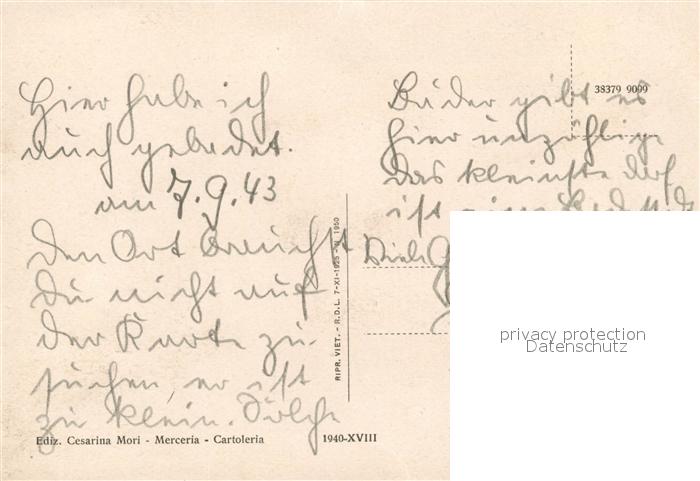 Hier habe ich
auch gebadet.
am 7.9.43
Den Ort brauchst
Du nicht auf
der Karte zu
suchen, er ist
zu klein. Solche
Ediz. Cesarina Mori - Merceria - Cartoleria
1940-XVIII
RIPR. VIET. - R.D.L. 7-XI-1925 - N. 1950
38379 9099
Bäder gibt es
hier unzählige
Das kleinste Dorf
ist
Viele
privacy protection
Datenschutz